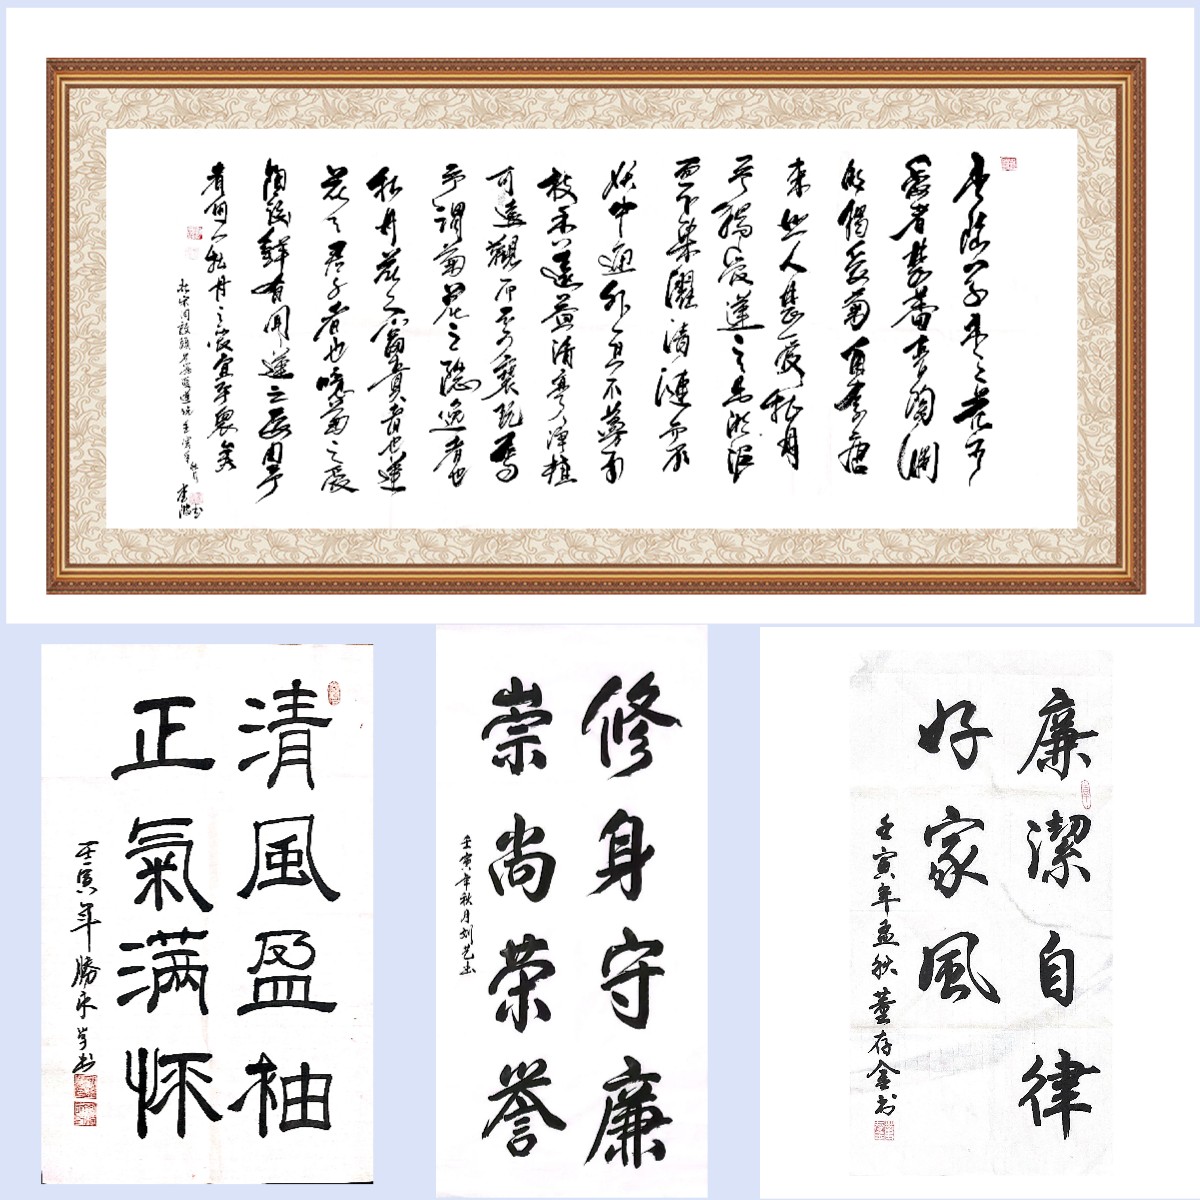 水陸草木之花可
愛者甚蕃晉陶淵
明獨愛菊自李唐
來世人甚愛牡丹
予獨愛蓮之出淤泥
而不染濯清漣而不
妖中通外直不蔓不
枝香遠益清亭亭淨植
可遠觀而不可褻玩焉
予謂菊花之隱逸者也
牡丹花之富貴者也蓮
花之君子者也噫菊之愛
陶後鮮有聞蓮之愛同予
者何人牡丹之愛宜乎眾矣
清風盈袖
正氣满怀
壬寅年
修身守廉
崇尚荣誉
壬寅年秋月刘艺书
廉潔自律
好家風
壬寅年孟秋董存金书